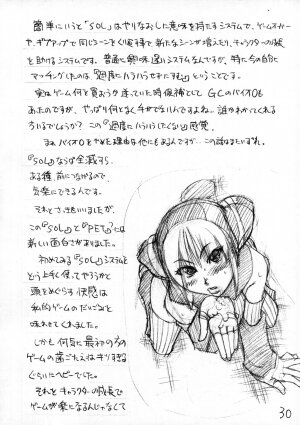 簡単にいうと「SOL」はやりなおしに意味を持たすシステムで、ゲームオーバー
や、ギブアップで同じシーンをくり返す事で新たなシーンが増えたり、キャラクターの成長
を助けるシステムです。普通に興味深いシステムなんですが、特に今の自分に
マッチングしたのは、「過度にハラハラせずにすむ」ということです。
実はゲーム何を買おうか迷っていた時候補として GCのバイオ0も
あったのですが、やっぱり何となく手がでないんですよね…誰かわかってくれる
方いるでしょうか？この「過度にハラハラしたくない」感覚。
まぁバイオ0をやめた理由は他にもあるんですが…この話はまたいずれ。
「SOL」ならば全滅すら、
ある種、前につながるので
気楽にできるんです。
それとさっきもいいましたが、
この「SOL」と「PET」には
新しい面白さがありました。
初めてみる「SOL」システムを
どう上手く使ってやろうかと
頭をめぐらす快感は
私的ゲームのだいごみを
味わせてくれました。
しかも何気に最初の方の
ゲームの歯ごたえはキツすぎる
ぐらいにヘビーでした。
それをキャラクターの成長で
ゲームが楽になるんじゃなくて
30